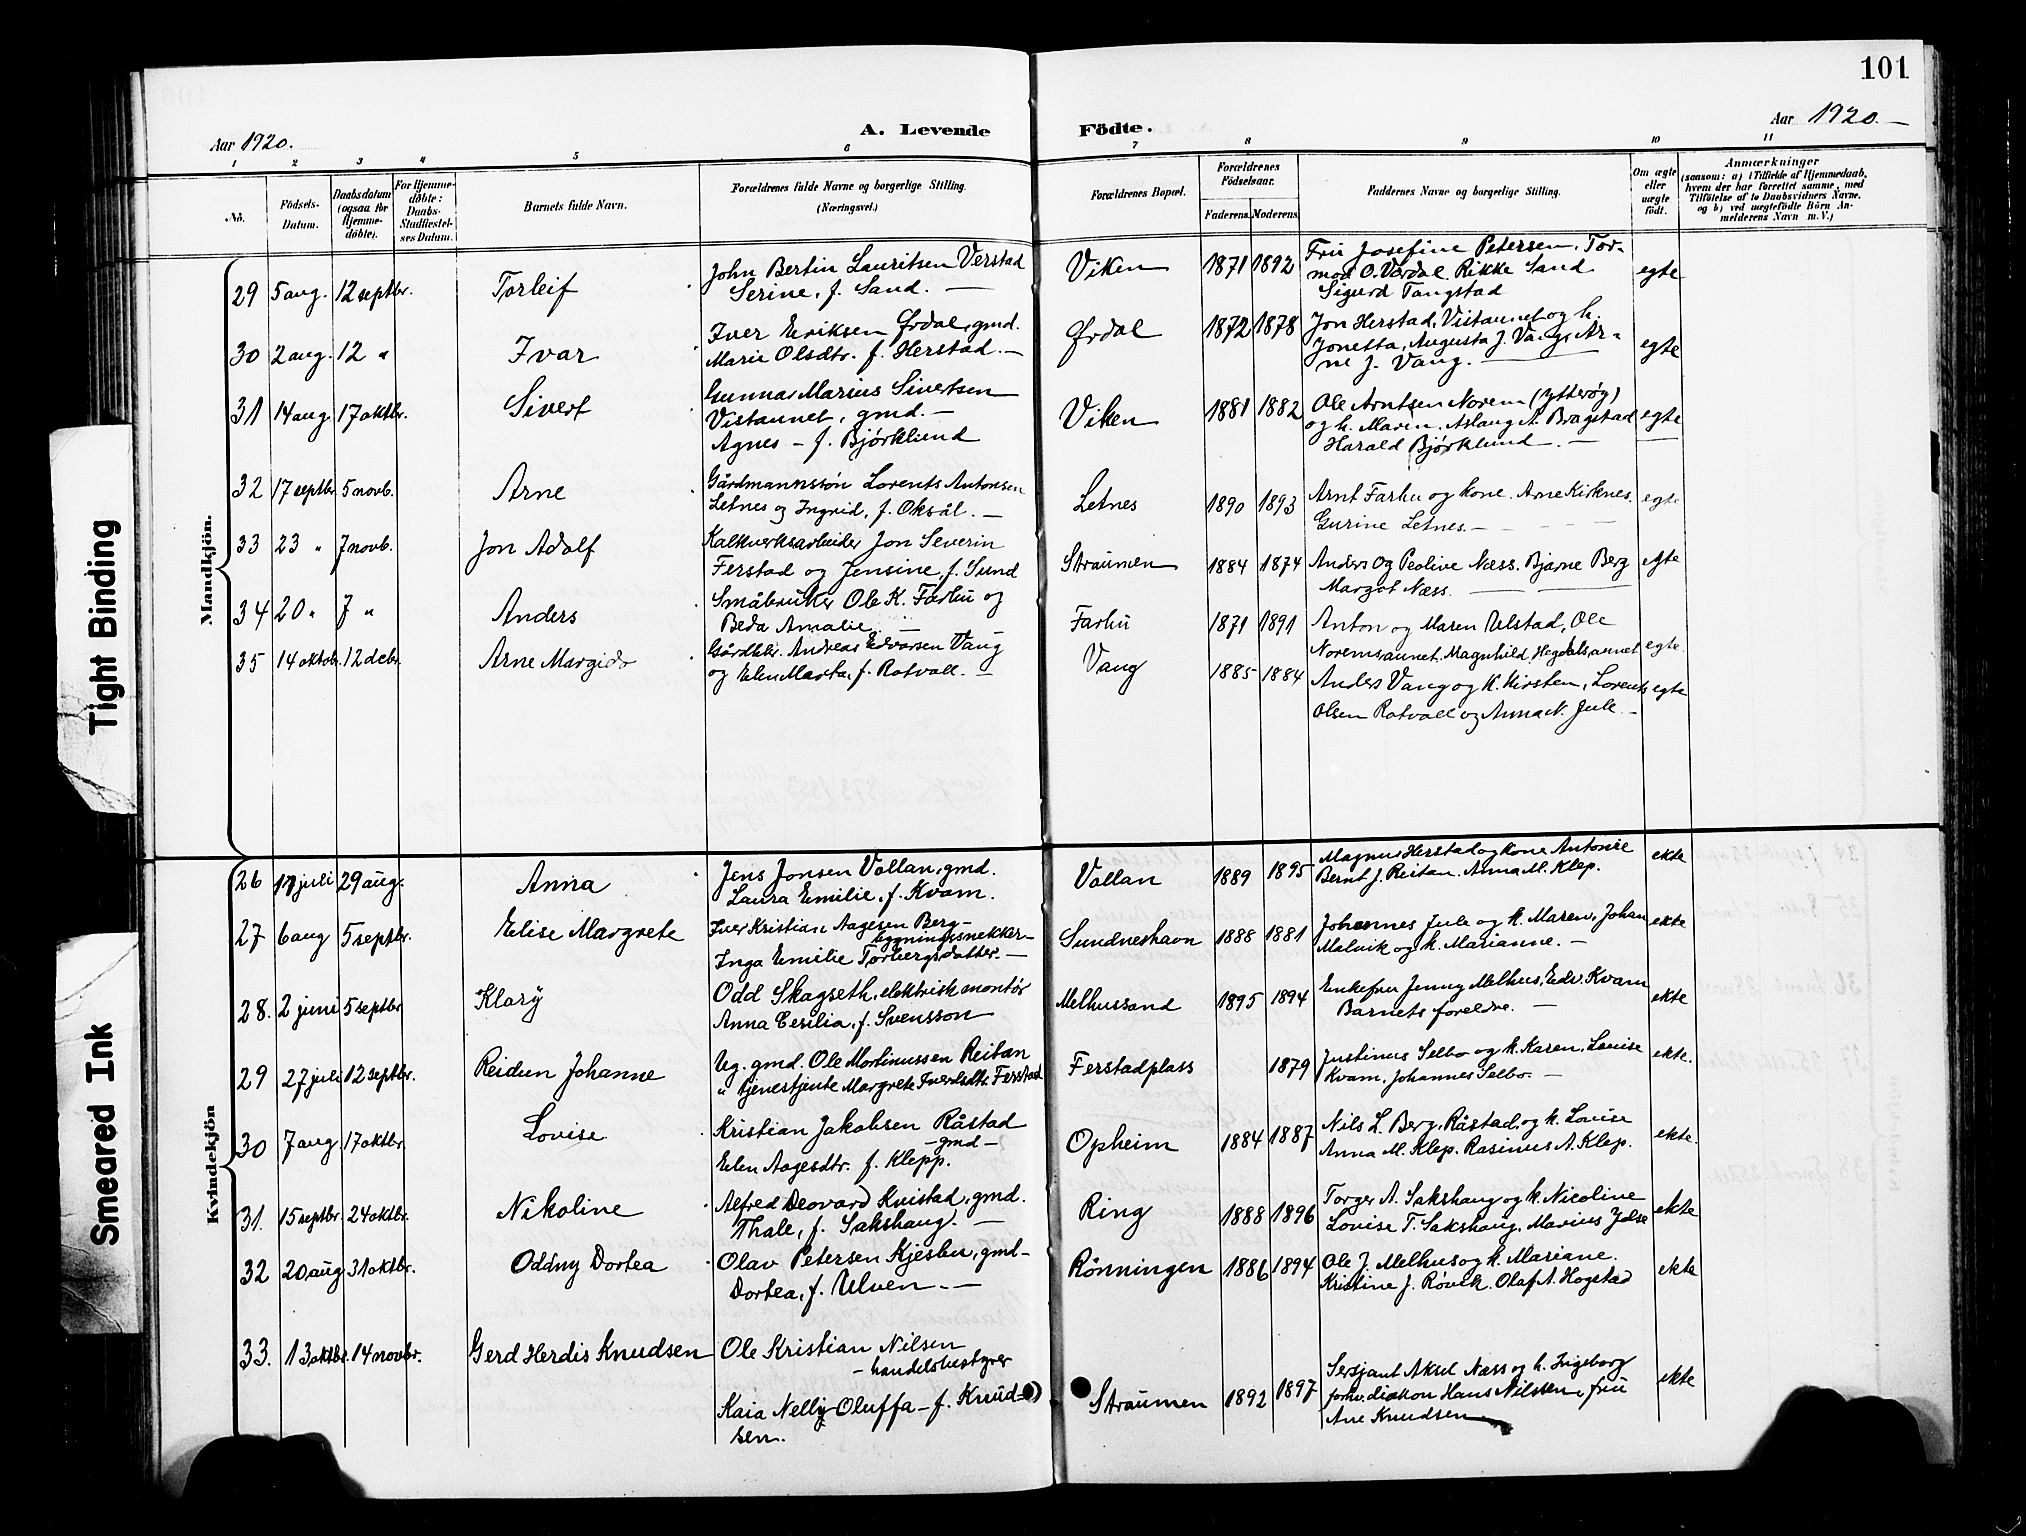 101
Aar 1920.
A. Levende Födte.
Aar 1920.
1 2 3 4 5 6 7 8 9 10 11
No.
Födsels-Datum.
Daabsdatum (ogsaa for Hjemme-döbte).
For Hjemme-döbte: Daabs-Stadfæstel-ses Datum.
Barnets fulde Navn.
Forældrenes fulde Navne og borgerlige Stilling. (Næringsvei.)
Forældrenes Bopæl.
Forældrenes Födselsaar.
Faderens. Moderens.
Faddernes Navne og borgerlige Stilling.
Om ægte eller uægte födt.
Anmærkninger
(saasom: a) i Tilfælde af Hjemmedaab, hvem der har forrettet samme, med Tilföielse af to Daabsvidners Navne, og b) ved uægtefödte Börn An-melderens Navn m. V.)
Mandkjön.
29 5 aug. 12 septbr. Torleif
John Bertin Lauritsen Verstad
Serine, f. Sand. —
Viken 1871 1892
Fru Josefine Petersen, Tor-
mod O. Vardal Rikke Sand
Sigurd Tangstad
egte
30 2 aug. 12 " Ivar
Iver Eriksen Ørdal, gmd.
Marie Olsdtr. f. Herstad. —
Ørdal 1872 1878
Jon Herstad, Vistaunet og h.
Jonetta, Augusta J. Vang, Ar-
ne J. Vang.
egte
31 14 aug. 17 oktbr. Sivert
Gunnar Marius Sivertsen
Vistaunet, gmd. —
Agnes — f. Bjørklund
Viken 1881 1882
Ole Arntsen Norem (Ytterøy)
og h. Maren, Aslaug A. Bragstad
Harald Bjørklund —
egte
32 17 septbr 5 novb. Arne
Gårdmannssøn Lorents Antonsen
Letnes og Ingrid, f. Oksål. —
Letnes 1890 1893
Arnt Farhu og kone. Arne Kirknes.
Gurine Letnes. —
egte
33 23 " 7 novb. Jon Adolf
Kalkverksarbeider Jon Severin
Ferstad og Jensine, f. Sund
Straumen 1884 1874
Anders og Peolive Næss. Bjarne Berg
Margot Næss.
egte
34 20 " 7 " Anders
Småbruker Ole K. Farhu og
Beda Amalie —
Farhu 1871 1891
Anton og Maren Ulstad, Ole
Noremsaunet. Magnhild Hegdalsaunet
egte.
35 14 oktobr. 12 decbr. Arne Margido
Gårdbr. Andreas Edvarsen Vang
og Elen Marta, f. Rotvoll. —
Vang 1885 1884
Anders Vang og k. Kirsten, Lorents
Olsen Rotvoll og Anna N. Jule —
egte
Kvindekjön
26 17 juli 29 aug. Anna
Jens Jonsen Vollan, gmd.
Laura Emilie, f. Kvam.
Vollan 1889 1895
Magnus Herstad og kone Antonie
Bernt J. Reitan. Anna M. Klep.
ekte
27 6 aug 5 septbr. Elise Margrete
Iver Kristian Aagesen Berg-
bygningssnekker-
Inga Emilie Torbergsdatter. —
Sundneshavn 1888 1881
Johannes Jule og k. Maren, Johan
Malvik og k. Marianne. —
ekte
28. 2 juni 5 septbr Klary
Odd Skagseth, elektrisk montør
Anna Cesilia, f. Svensson
Melhussand 1895 1894
Enkefru Jenny Melhus, Edv. Kvam
Barnets foreldre. —
ekte
29 27 juli 12 septbr. Reidun Johanne
Ug. gmd. Ole Mortinussen Reitan
" tjenestjente Margrete Iversdtr. Ferstad
Ferstadplass 1879
Justinus Selbo og k. Karen, Lovise
Kvam, Johannes Selbo. —
ekte.
30 7 aug 17 oktbr. Lovise
Kristian Jakobsen Råstad
— gmd —
Elen Aagesdtr. f. Klepp.
Opheim 1884 1887
Nils L. Berg, Råstad, og k. Lovise
Anna M. Klep. Rasinus A. Klep.
ekte.
31. 15 septbr. 24 oktbr. Nikoline
Alfred Deovard Kvistad, gmd.
Thale, f. Sakshaug. —
Ring 1888 1896
Torger A. Sakshaug og k. Nicoline
Lovise T. Sakshaug, Marius Ydse
ekte
32 20 aug 31 oktbr. Oddny Dortea
Olav Petersen Kjesbu, gmd-
Dortea, f. Ulven. —
Rönningen 1886 1894
Ole J. Melhus og k. Mariane.
Kristine J. Røvik. Olaf A. Hogstad
ekte
33. 13 oktbr. 14 novbr. Gerd Herdis Knudsen
Ole Kristian Nilsen
— handelsbestyrer
Kaia Nelly Oluffa — f. Knud-
sen.
Straumen 1892 1897
Sersjant Aksel Næss og h. Ingeborg
forhv. diakon Hans Nilssen, fru
Ane Knudsen
ekte
Tight Binding
Smeared Ink